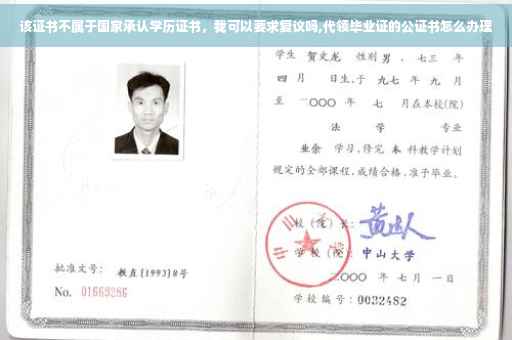 该证书不属于国家承认学历证书，我可以要求复议吗,代领毕业证的公证书怎么办理
学生 贺文龙 性别 男 ，七三 年
四 月 日生,于 九七 年 九 月
至 二〇〇〇 年 七 月在本校(院)
法 学 专业
业余 学习,修完 本 科教学计划
规定的全部课程,成绩合格,准予毕业。
校 (院) 长:
学 校 (院): 中山大学
二〇〇〇 年 七 月 一 日
学校编号: 0032482
批准文号: 教直(1993)8号
No. 01669286